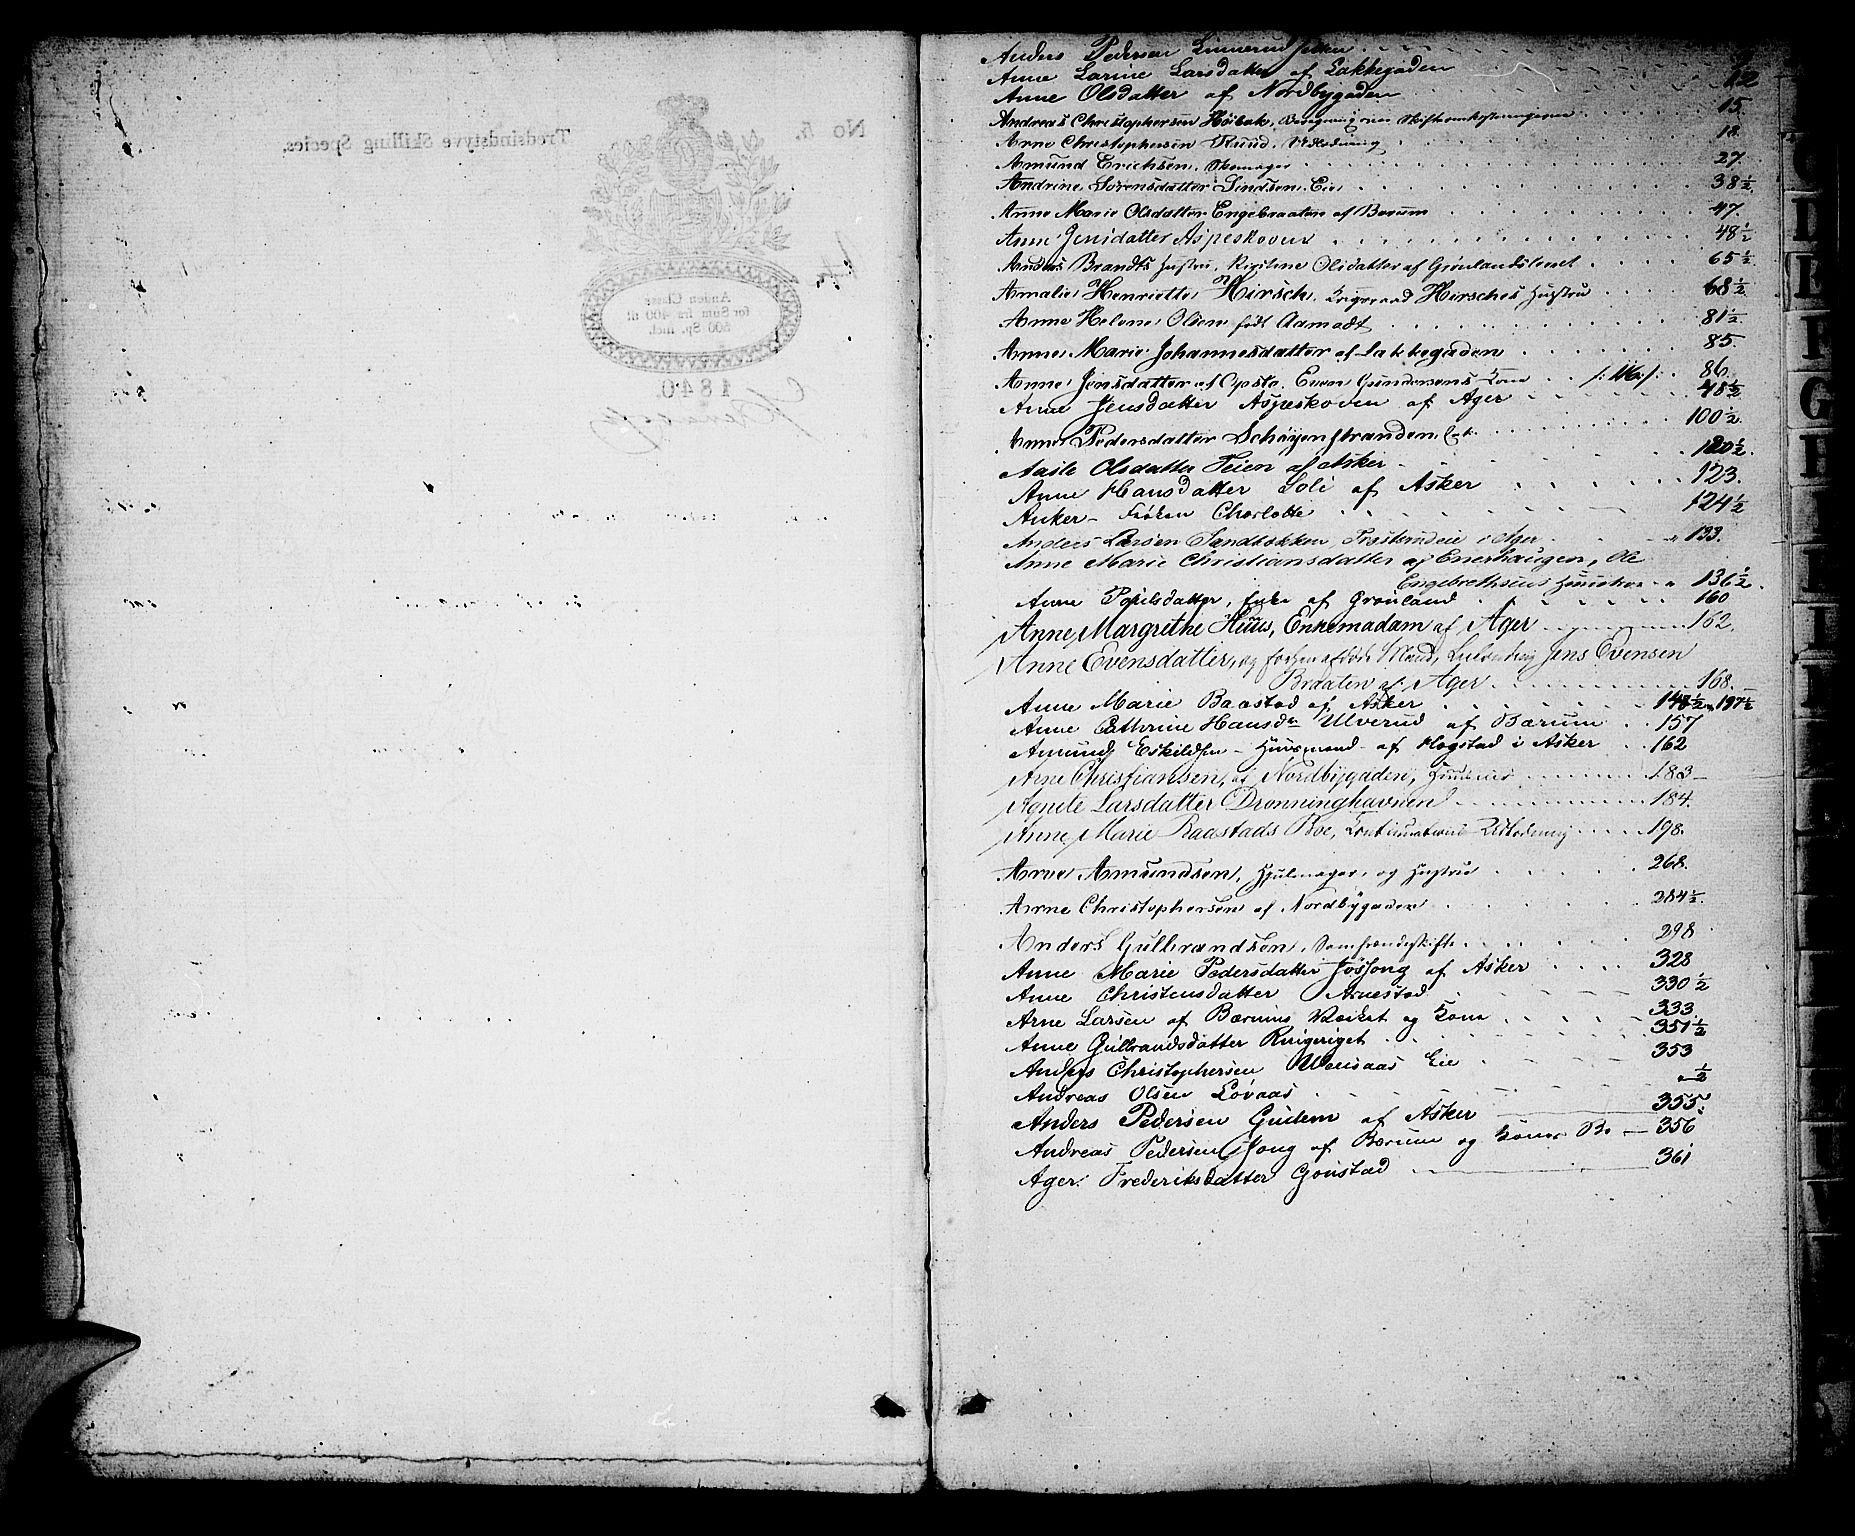 No 5.
Tredsindstyve Skilling Species.
Anden Classe
for Sum fra 400 til
500 Sp. incl.
1840
Anders Pedersen Linnerud
Anne Larine Larsdatter af Lakkegaden 12
Anne Olsdatter af Nordbygaden 15.
Andreas Christophersen Höibak, Beregning over Skifteomkostningerne 18
Arne Christophersen Ruud, Udlodning
Amund Erichsen, Skomager 27.
Andrine Sörensdatter Lindsen Eie 38½
Anne Marie Olsdatter Engebraaten af Bærum 47.
Anne Jensdatter Aspeskoven 48½
Anders Brandts Hustru, Kirstine Olsdatter af Grönlandsleret 65½
Amalie Henriette Hirsch, Krigsraad Hirsches Hustru 68½
Anne Helene Olsen født Aamodt 81½
Anne Marie Johannesdatter af Lakkegaden 85.
Anne Jensdatter af Opsto, Even Gundersens Kone 86.
Anne Jensdatter Aspeskoven af Ager 48½
Anne Pedersdatter Schöyenstranden 100½
Aasle Olsdatter Teien af Asker 120½
Anne Hansdatter Solie af Asker 123.
Anker - Frøken Charlotte 124½
Anders Larsen Sandbakken i Ager 133.
Anne Marie Christiansdatter af Enerhaugen, Ole
Engebrethsens Hustru 136½
Anne Poulsdatter, Enke af Grönland 160
Anne Margrethe Huus, Enkemadam af Ager 162.
Anne Evensdatter, og forhen afdøde Mand, Jens Evensen
Braaten af Ager 168.
Anne Marie Baastad af Asker 148½ 197½
Anne Cathrine Hansdr Ulverud af Bærum 157
Amund Eskildsen - Huusmand - af Hogstad i Asker 162
Arne Christiansen, af Nordbygaden 183
Agnete Larsdatter Dronninghavnen 184.
Anne Marie Baastads Boe, Udlodning 198.
Arne Amundsen, Hjulmager, og Hustrue 268.
Arne Christophersen af Nordbygaden 284½.
Anders Gulbrandsen, Samfrændeskifte 298
Anne Marie Pedersdatter Jøssong af Asker 328
Anne Christensdatter Arnestad 330½
Arne Larsen af Bærums Værket og Kone 333
Anne Gulbrandsdatter Ringeriget 351½
Anders Christophersen Wensaas Eie 353
Andreas Olsen Lovaas ½
Anders Pedersen Gudem af Asker 355
Andreas Pedersen Jong af Bærum og Kones Bo 356
Ager. Frederiksdatter Gonstad 361